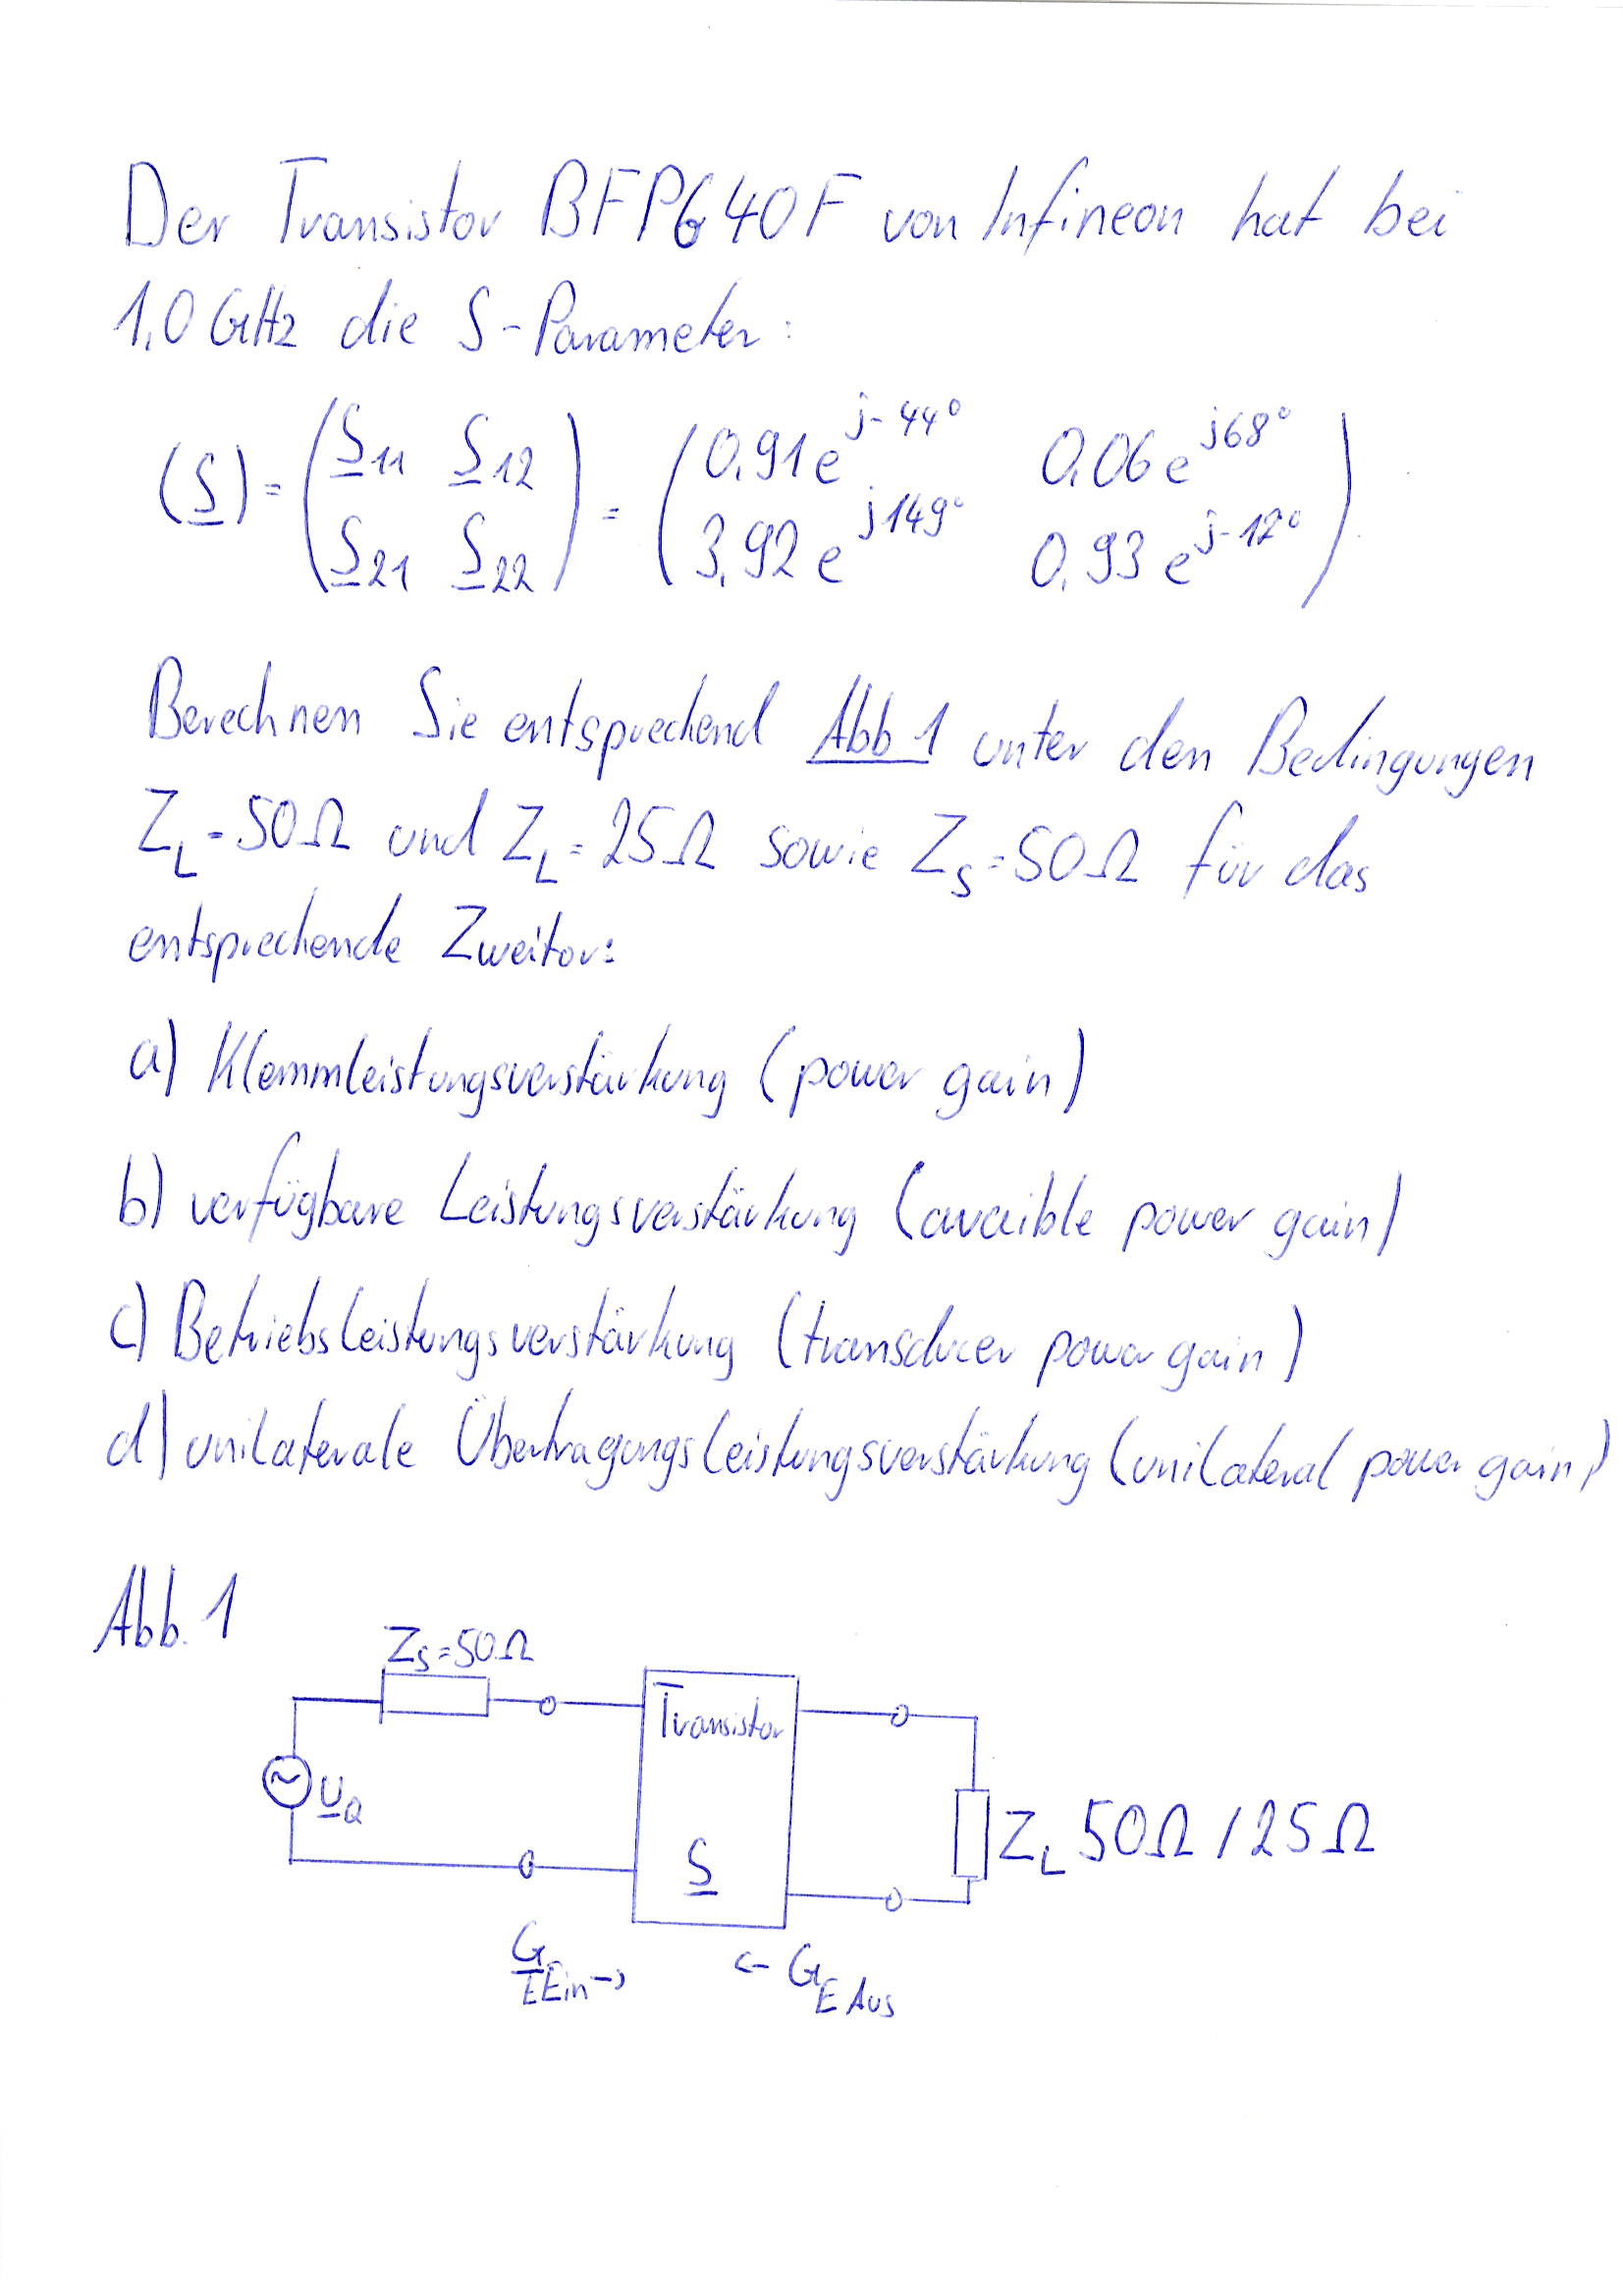 Der Transistor BFP640F von Infineon hat bei
1,0 GHz die S-Parameter:
(S) = (S11 S12 S21 S22) = (0,91e^j-44° 0,06e^j68° 3,92e^j149° 0,93e^j-12°)
Berechnen Sie entsprechend Abb 1 unter den Bedingungen
ZL=50Ω und ZL=25Ω sowie ZS=50Ω für das
entsprechende Zweitor:
a) Klemmleistungsverstärkung (power gain)
b) verfügbare Leistungsverstärkung (avaible power gain)
c) Betriebsleistungsverstärkung (transducer power gain)
d) unilaterale Übertragungsleistungsverstärkung (unilateral power gain)
Abb. 1
ZS=50Ω
Transistor
UQ
S
ZL 50Ω / 25Ω
GEEin→
← GEAus